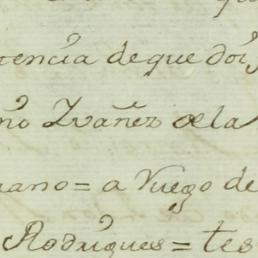 tencia de que doi
ño Zvañez de la
uano = a Ruego de
Rodrigues = tes